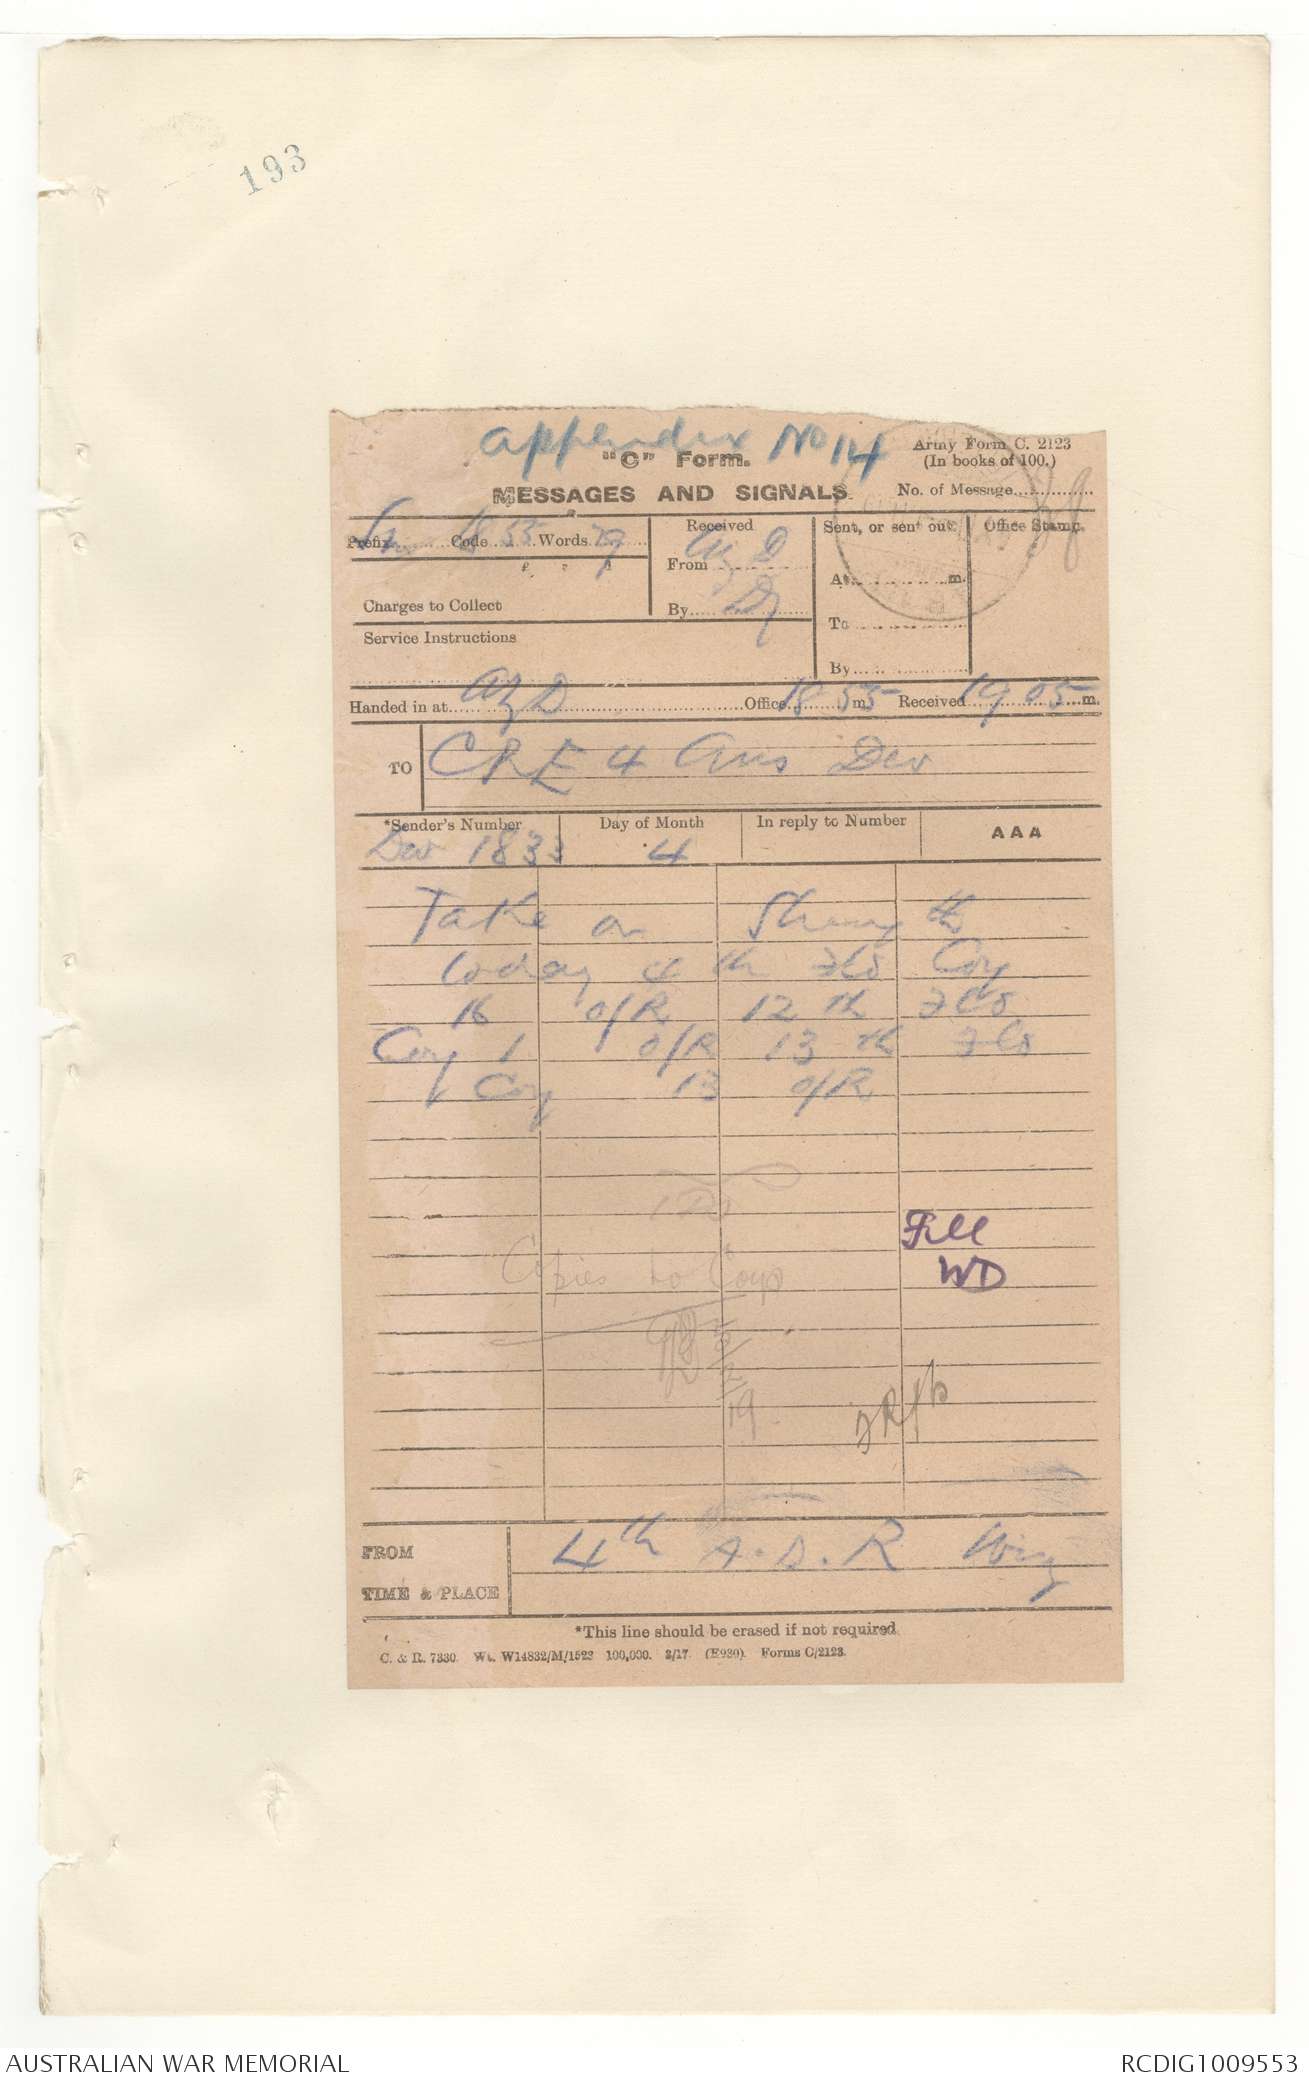 193
appendix No 14
"C" Form.
Army Form C. 2123
(In books of 100.)
MESSAGES AND SIGNALS.
No. of Message
Prefix Sm Code 1855 Words 29
Received
From AZD
By
Sent, or sent out
At m.
To
By
Office Stamp.
£ s d
Charges to Collect
Service Instructions
Handed in at AZD Office 1855 m. Received 1905 m.
TO CRE 4 Aus Div
*Sender's Number Day of Month In reply to Number AAA
Dev 1833 4
Take on Strength
today 4 th Fld Coy
16 O/R 12 th Fld
Coy 1 O/R 13 th Fld
Coy 13 O/R
Copies to Coys
5/2/19
File
WD
FROM 4th A.D.R Wing
TIME & PLACE
*This line should be erased if not required
C. & R. 7330. Wt. W14832/M/1523 100,000. 3/17 (E930). Forms C/2123.
AUSTRALIAN WAR MEMORIAL
RCDIG1009553